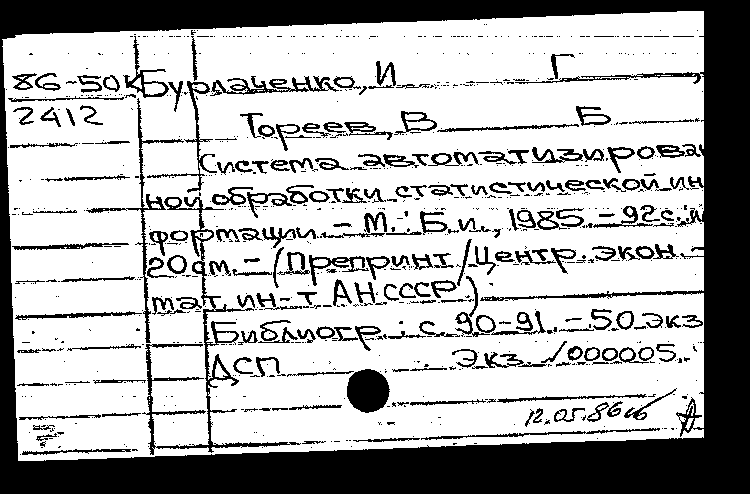 86-50К Бурлаченко, И Г ,
2412
Тореев, В Б
Система автоматизирован
ной обработки статистической ин
формации. – М.: Б.и., 1985. – 92с.:
20см. – (Препринт / Центр. экон. –
мат. ин-т АН СССР).
Библиогр.: с. 90-91. – 50 экз
ДСП Экз. 000005.
12.05.86